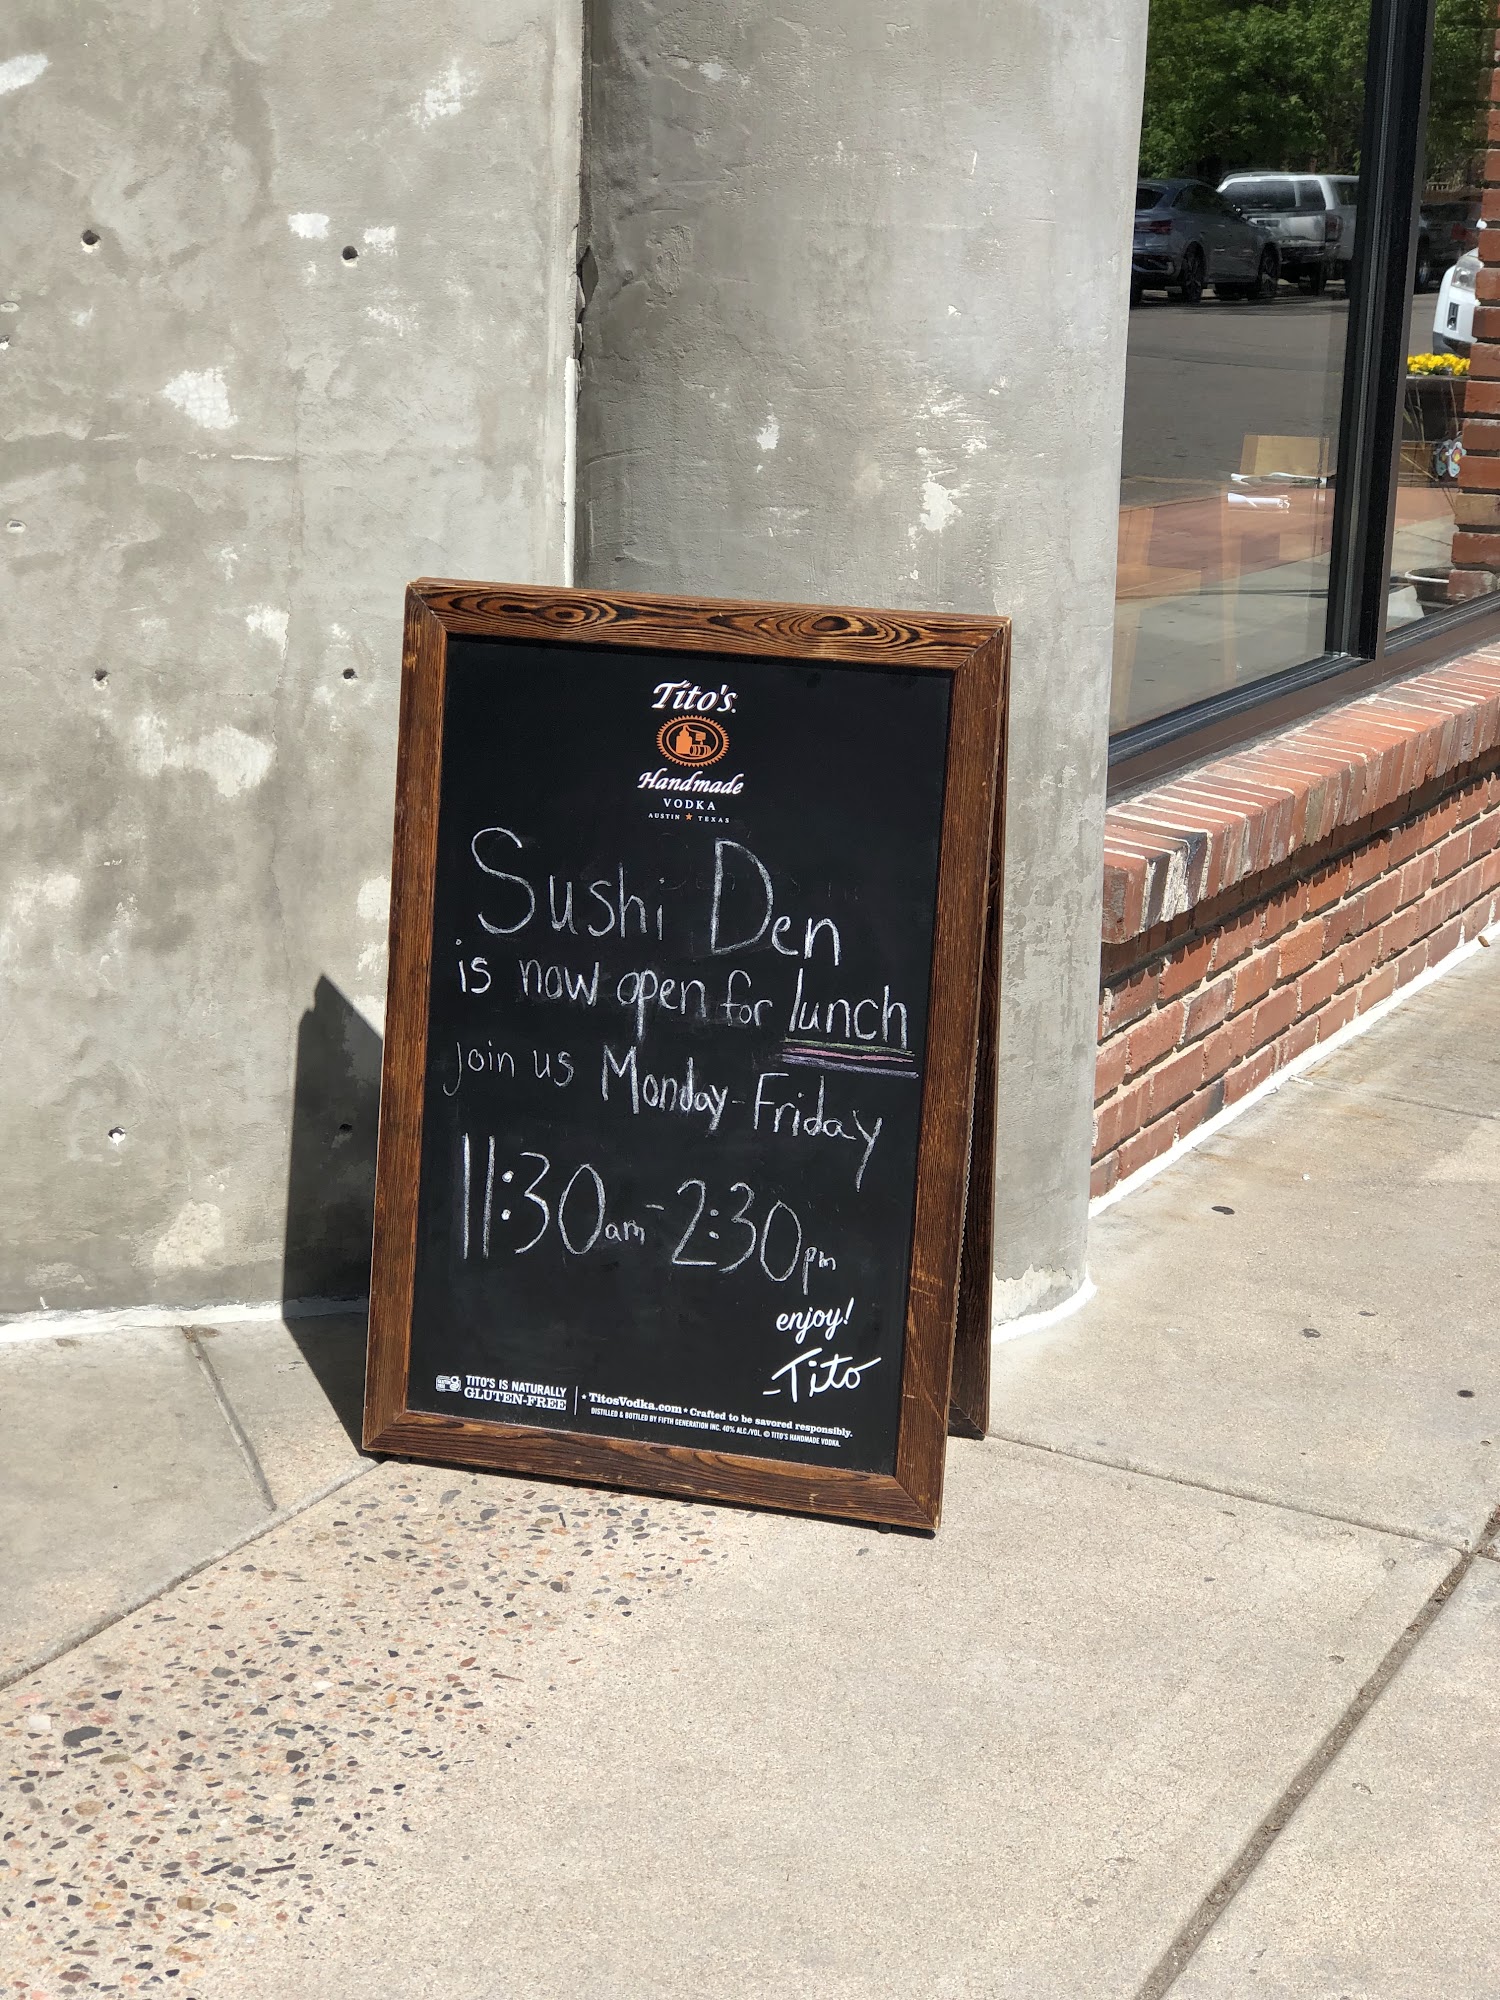 Tito's
Handmade
VODKA
AUSTIN ★ TEXAS
Sushi Den
is now open for lunch
join us Monday-Friday
11:30am-2:30pm
enjoy!
-Tito
TITO'S IS NATURALLY
GLUTEN-FREE
* TitosVodka.com * Crafted to be savored responsibly.
DISTILLED & BOTTLED BY FIFTH GENERATION INC. 40% ALC./VOL. © TITO'S HANDMADE VODKA.